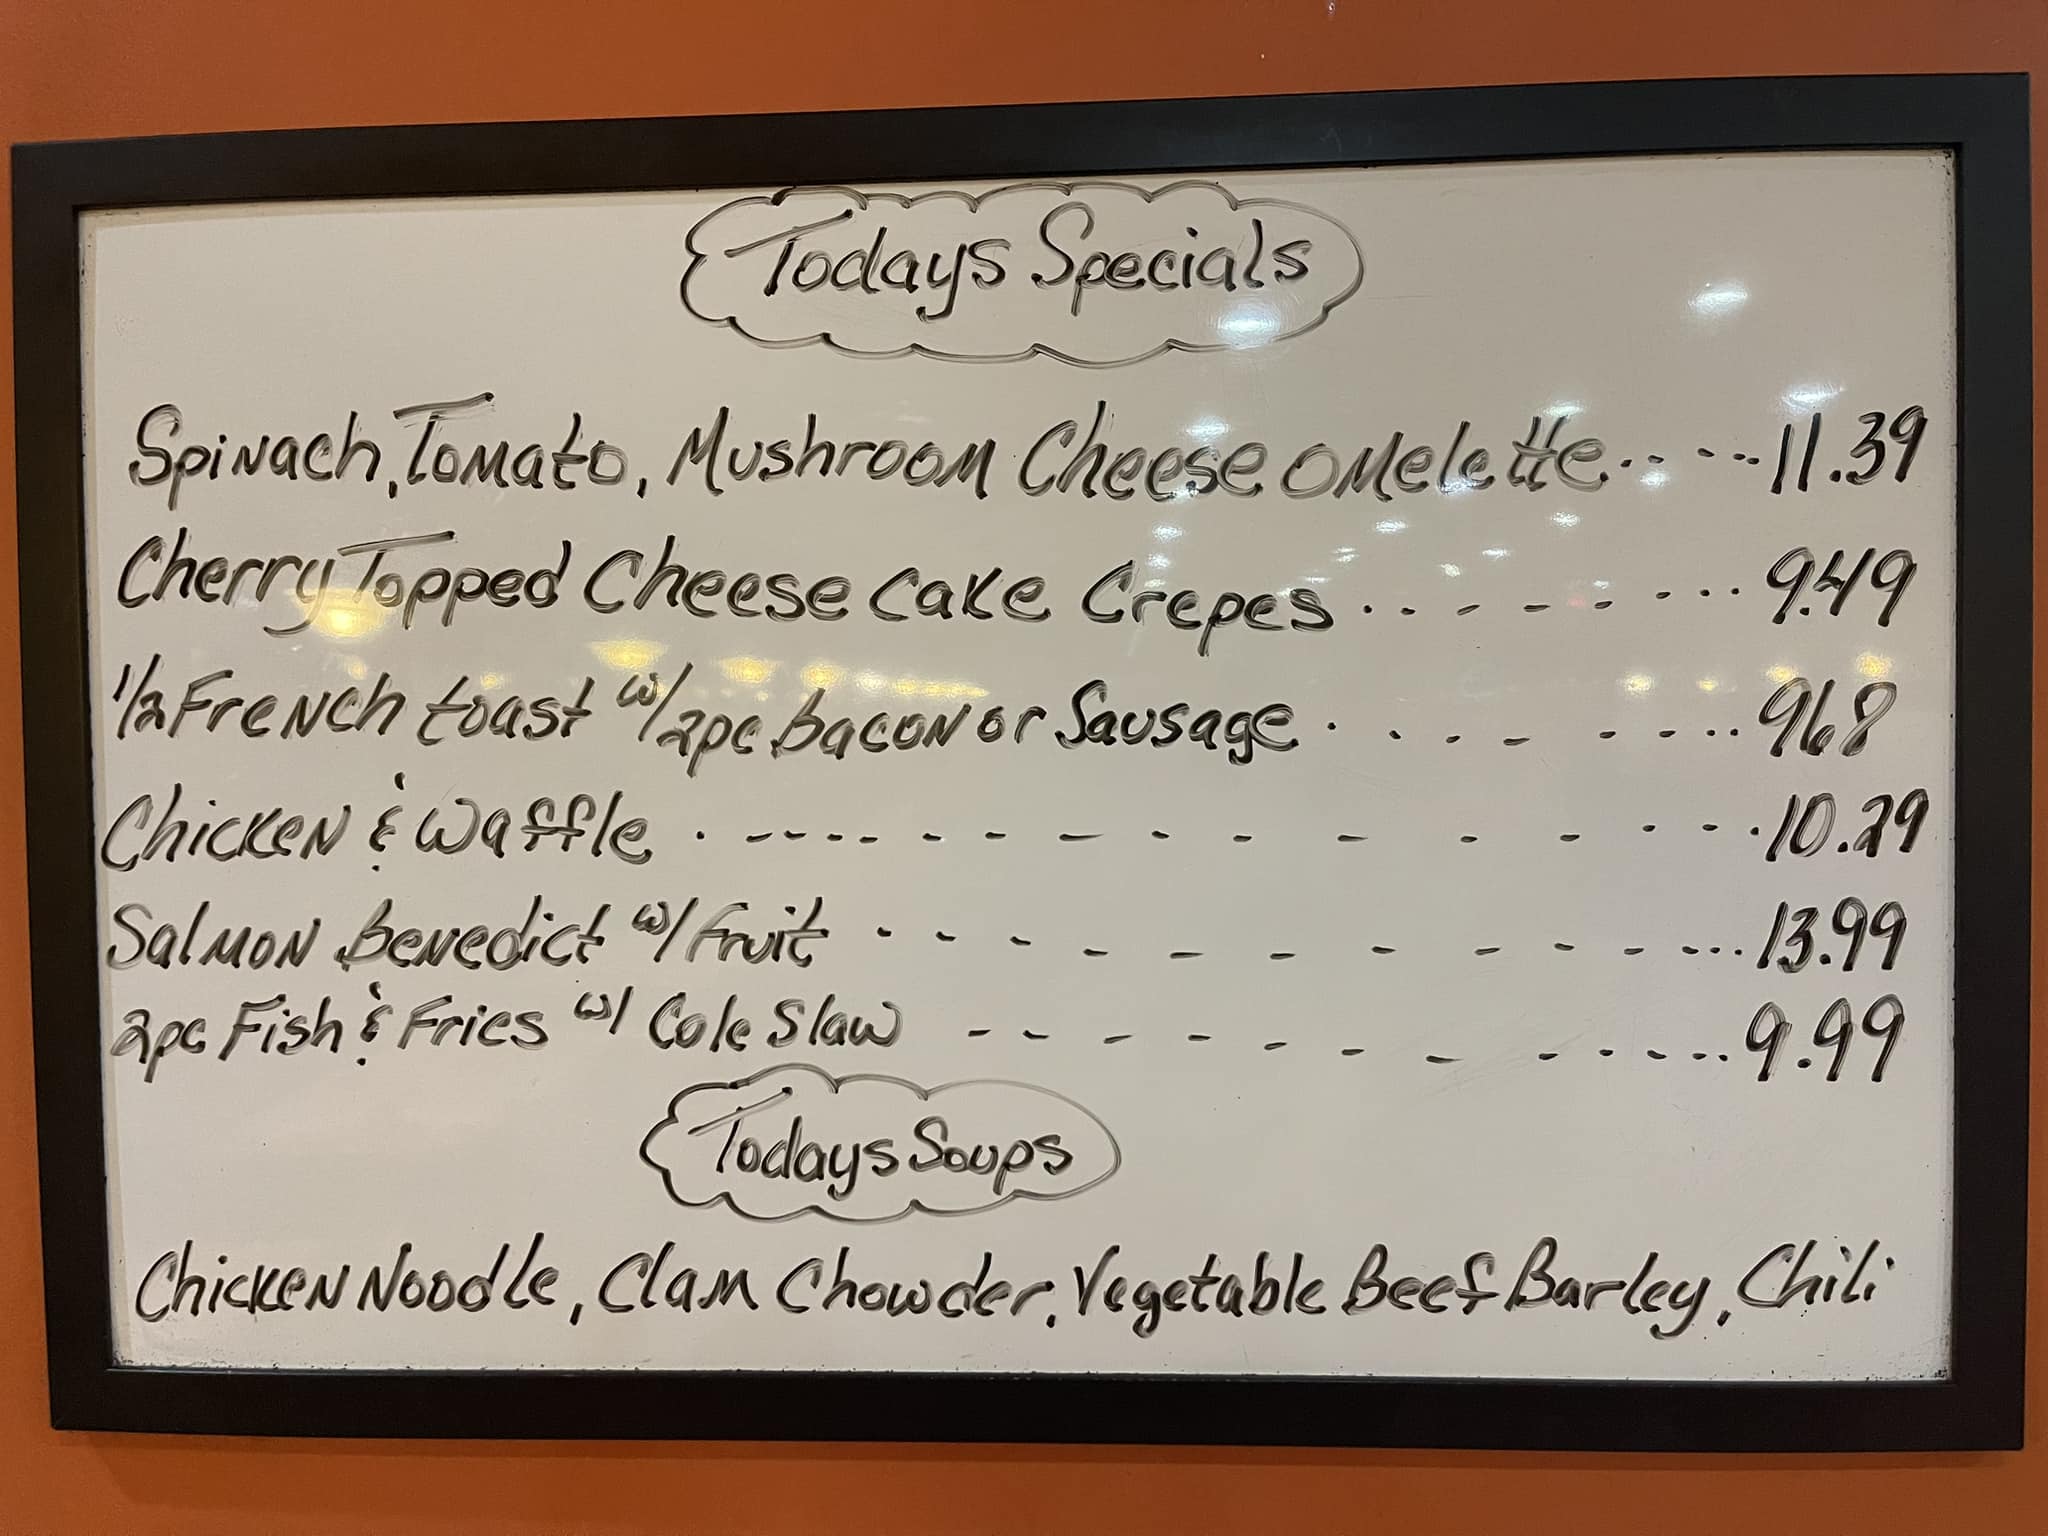 Todays Specials
Spinach, Tomato, Mushroom Cheese omelette.. - - --11.39
Cherry Topped Cheese cake Crepes.. - - - - - --9.49
1/2 French toast w/2pc bacon or Sausage. . - - - - -..968
Chicken & Waffle . - - - - - - - - - - - - - - -.10.29
Salmon Benedict w/ Fruit - - - - - - - - - - -...13.99
2pc Fish & Fries w/ Cole Slaw - - - - - - - - - - -..9.99
Todays Soups
Chicken Noodle, Clam Chowder, Vegetable Beef Barley, Chili